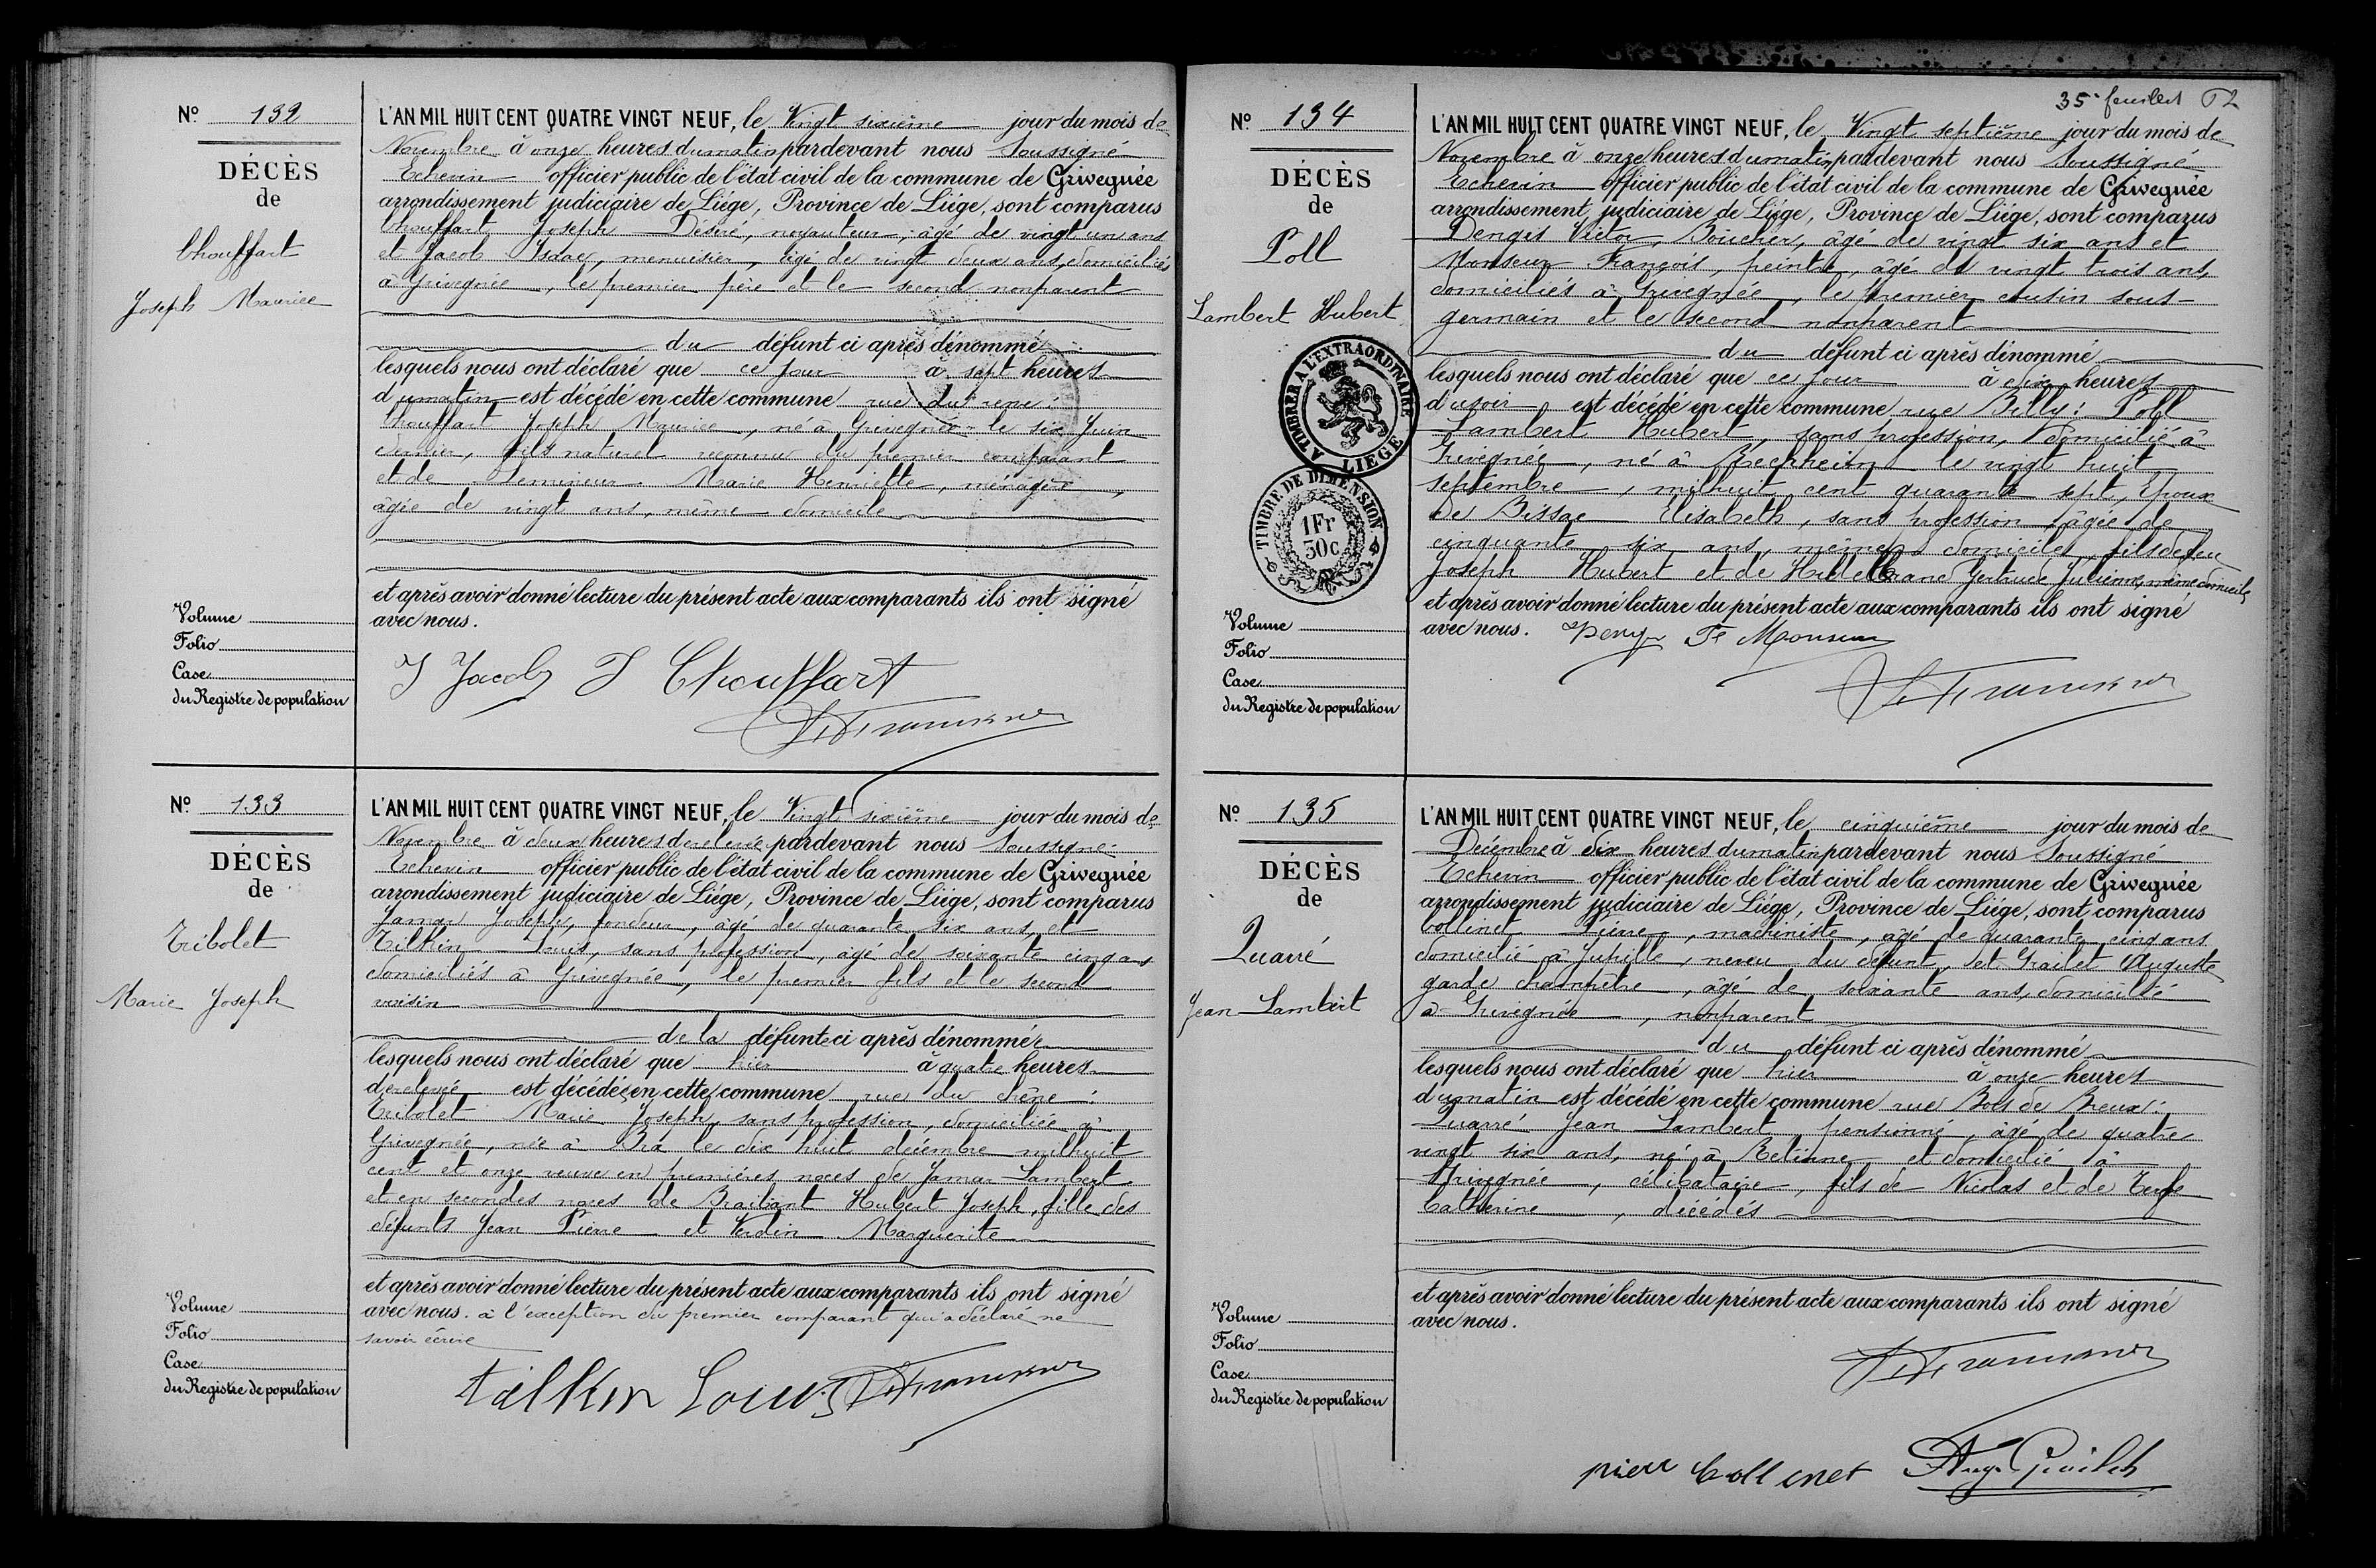 Nº 132
DÉCÈS
de
Chouffart
Joseph Maurice
L'AN MIL HUIT CENT QUATRE VINGT NEUF, le Vingt sixième jour du mois de
Novembre à onze heures du matin pardevant nous Soussigné
Echevin officier public de l'état civil de la commune de Grivegnée
arrondissement judiciaire de Liége, Province de Liége, sont comparus
Chouffart Joseph Désiré, âgé de vingt un ans
et Jacob Isdac, menuisier, âgé de vingt deux ans, domiciliés
à Grivegnée, le premier père et le second nonparent
du défunt ci après dénommé
lesquels nous ont déclaré que ce jour à sept heures
du matin est décédé en cette commune rue
Chouffart Joseph Maurice, né à Grivegnée le six Juin
dernier, fils naturel reconnu du premier comparant
et de Marie Henriette, ménagère,
âgée de vingt ans, même domicile
et après avoir donné lecture du présent acte aux comparants ils ont signé
avec nous.
J Jacob J Chouffart
Volume
Folio
Case
du Registre de population
Nº 133
DÉCÈS
de
Tribolet
Marie Joseph
L'AN MIL HUIT CENT QUATRE VINGT NEUF, le Vingt sixième jour du mois de
Novembre à deux heures de relevée pardevant nous Soussigné
Echevin officier public de l'état civil de la commune de Grivegnée
arrondissement judiciaire de Liége, Province de Liége, sont comparus
Jamar Joseph, fondeur, âgé de quarante six ans, et
Tilkin Louis, sans profession, âgé de soixante cinq ans
domiciliés à Grivegnée, le premier fils et le second
voisin
de la défunte ci après dénommée
lesquels nous ont déclaré que hier à quatre heures
de relevée est décédée en cette commune rue du chêne :
Tribolet Marie Joseph, sans profession, domiciliée à
Grivegnée, née à Bra le dix huit décembre mil huit
cent et onze veuve en premières noces de Jamar Lambert
et en secondes noces de Brailiant Hubert Joseph, fille des
défunts Jean Pierre et Verdin Marguerite
et après avoir donné lecture du présent acte aux comparants ils ont signé
avec nous. à l'exception du premier comparant qui a déclaré ne
savoir écrire
tilkin Louis
Volume
Folio
Case
du Registre de population
35e feuillet
Nº 134
DÉCÈS
de
Poll
Lambert Hubert
A TIMBRER A L'EXTRAORDINAIRE
LIEGE
TIMBRE DE DIMENSION
1Fr
30c
L'AN MIL HUIT CENT QUATRE VINGT NEUF, le Vingt septième jour du mois de
Novembre à onze heures du matin pardevant nous Soussigné
Echevin officier public de l'état civil de la commune de Grivegnée
arrondissement judiciaire de Liége, Province de Liége, sont comparus
Dengis Victor, Boucher, âgé de vingt six ans et
Monseur François, peintre, âgé de vingt trois ans,
domiciliés à Grivegnée, le premier cousin sous-
germain et le second nonparent
du défunt ci après dénommé
lesquels nous ont déclaré que ce jour à dix heures
du soir est décédé en cette commune rue Billy : Poll
Lambert Hubert, sans profession, domicilié à
Grivegnée, né à le vingt huit
septembre, mil huit cent quarante sept, Epoux
de Bissac Elisabeth, sans profession, âgée de
cinquante six ans, même domicile, fils de feu
Joseph Hubert et de Gertrude Julienne, même domicile
et après avoir donné lecture du présent acte aux comparants ils ont signé
avec nous. Fs Monseur
Volume
Folio
Case
du Registre de population
Nº 135
DÉCÈS
de
Quarré
Jean Lambert
L'AN MIL HUIT CENT QUATRE VINGT NEUF, le cinquième jour du mois de
Décembre à dix heures du matin pardevant nous Soussigné
Echevin officier public de l'état civil de la commune de Grivegnée
arrondissement judiciaire de Liége, Province de Liége, sont comparus
Collinet Pierre, machiniste, âgé de quarante cinq ans
domicilié à Jupille, neveu du défunt, et Grailet Auguste
garde champêtre, âgé de soixante ans, domicilié
à Grivegnée, nonparent
du défunt ci après dénommé
lesquels nous ont déclaré que hier à onze heures
du matin est décédé en cette commune rue Bois de Breux :
Quarré Jean Lambert pensionné, âgé de quatre
vingt six ans, né à Retinne et domicilié à
Grivegnée, célibataire, fils de Nicolas et de
Catherine, décédés
et après avoir donné lecture du présent acte aux comparants ils ont signé
avec nous.
pierr Collinet Aug. Grailet
Volume
Folio
Case
du Registre de population